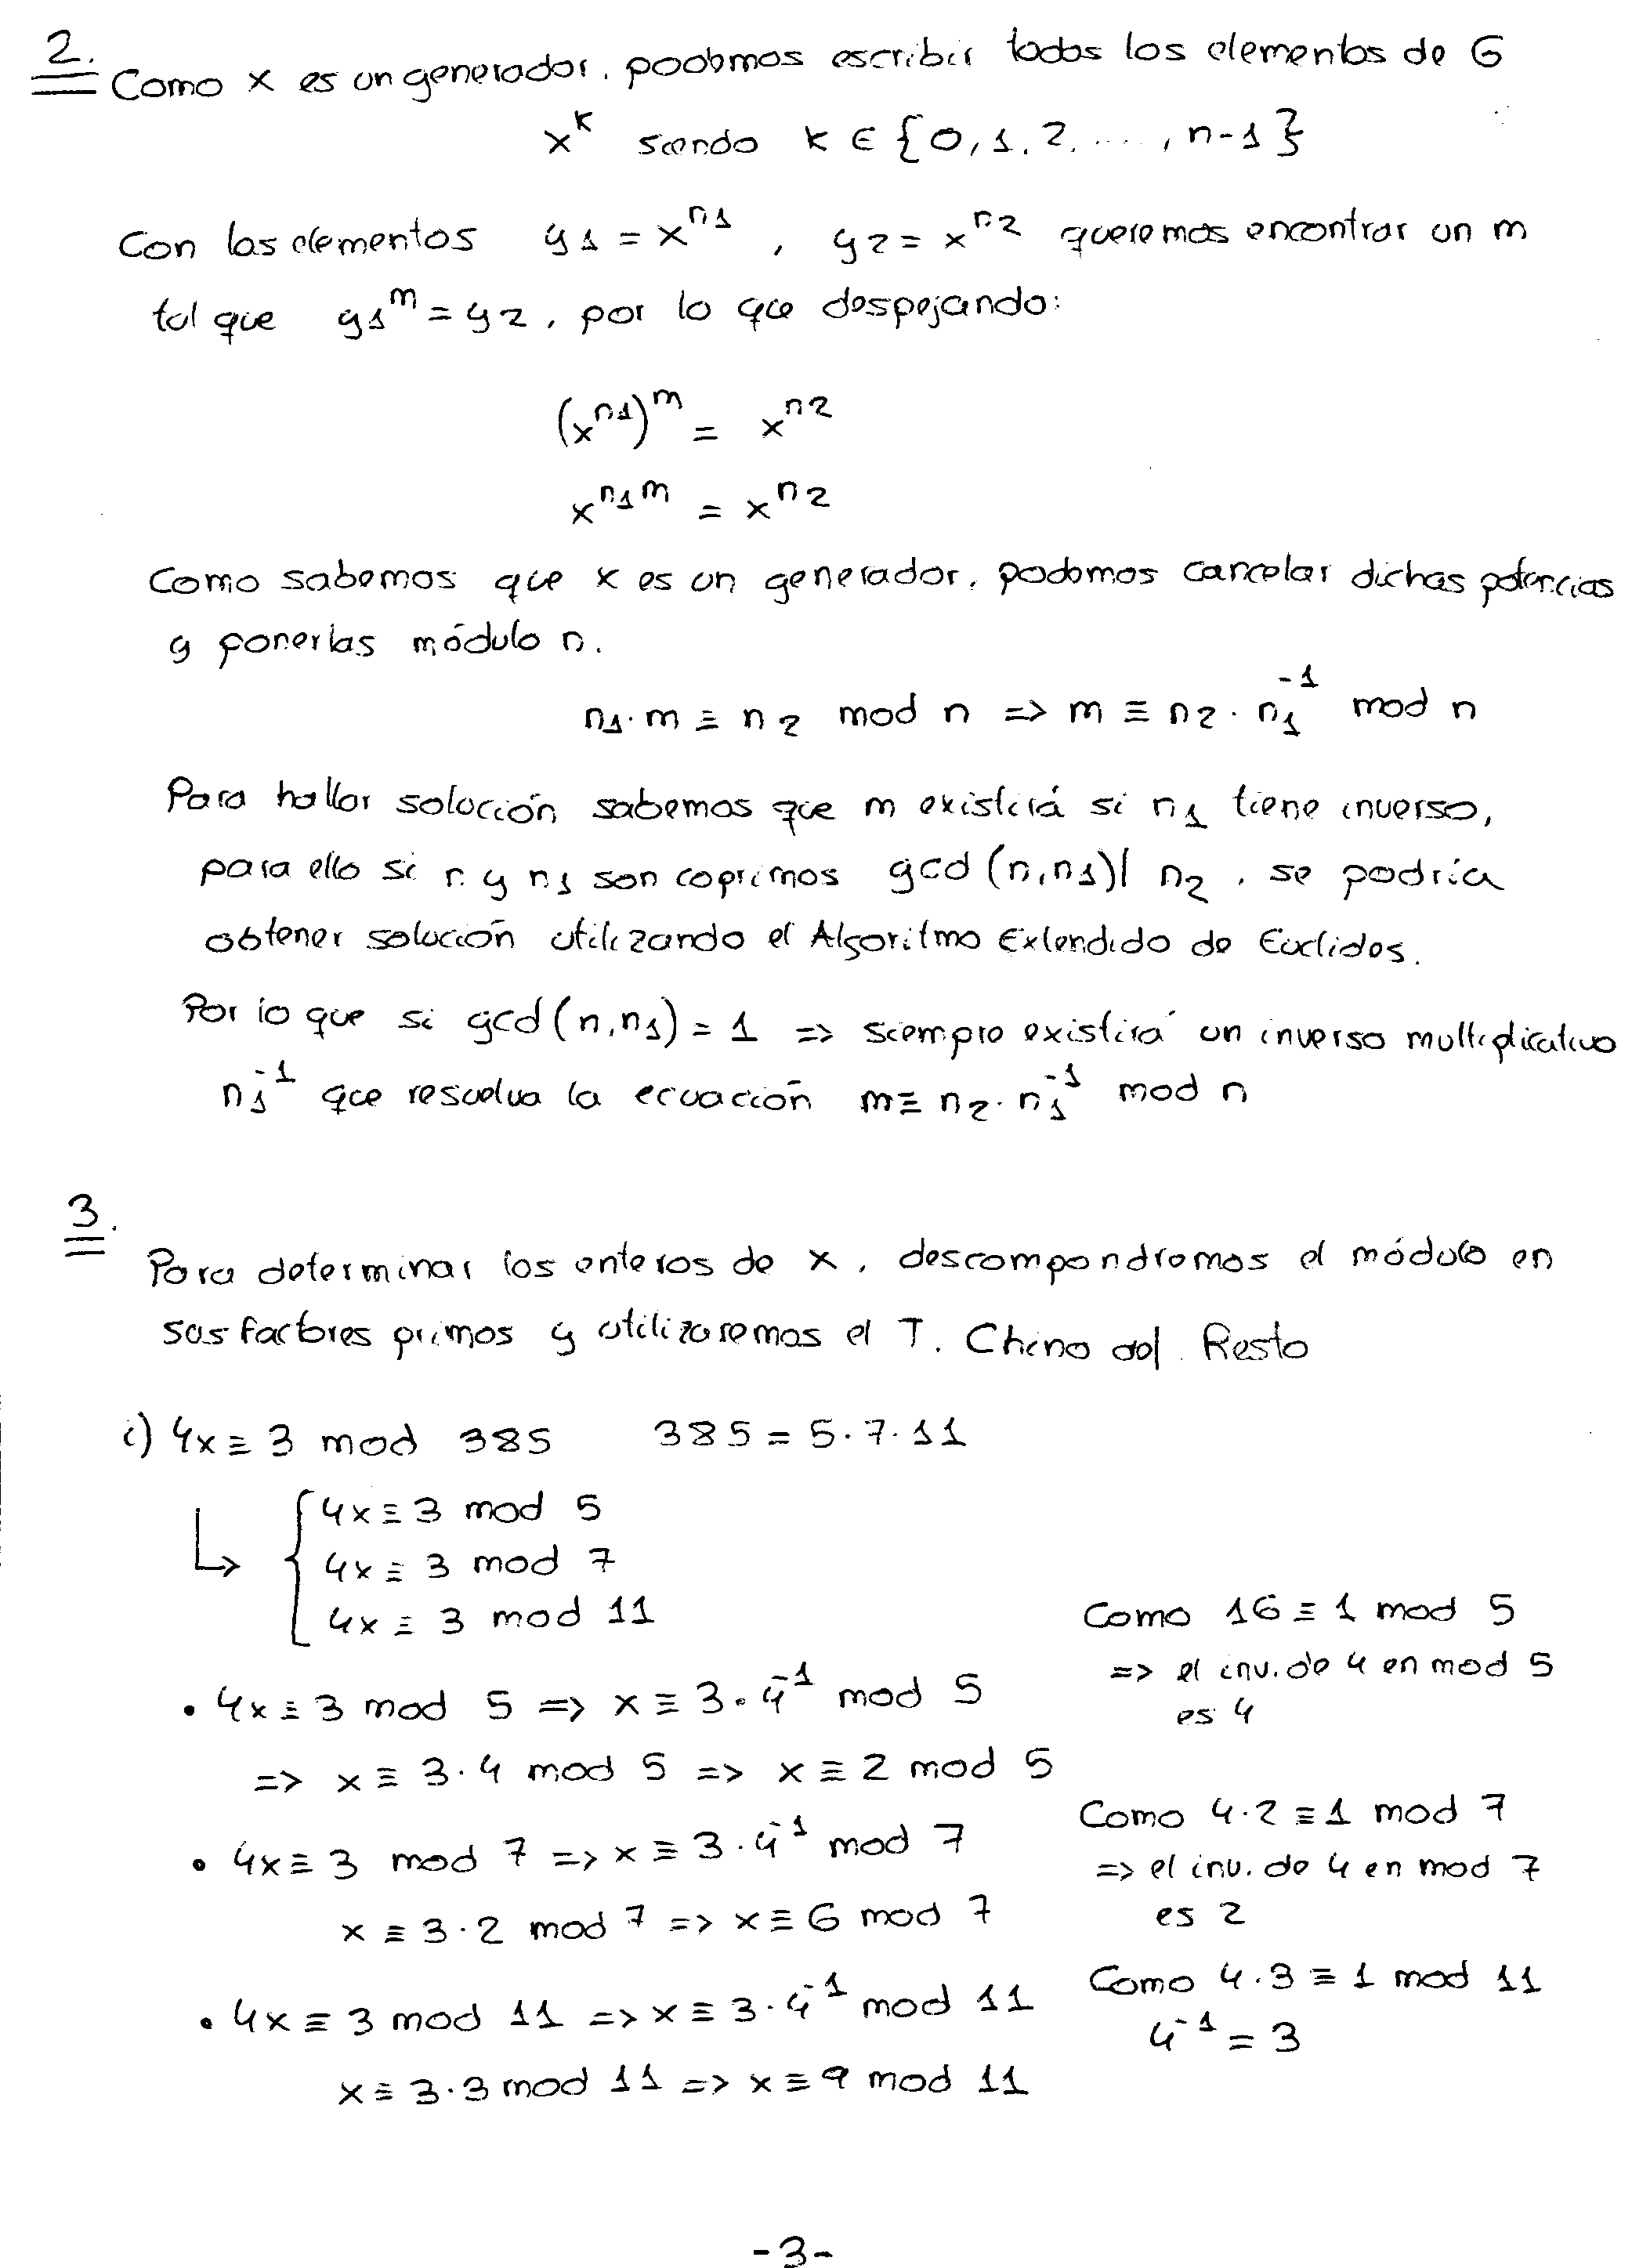 2. Como x es un generador, podemos escribir todos los elementos de G
x^k siendo k ∈ {0, 1, 2, ...., n-1}
Con los elementos y1 = x^n1 , y2 = x^n2 queremos encontrar un m
tal que y1^m = y2, por lo que despejando:
(x^n1)^m = x^n2
x^n1m = x^n2
Como sabemos que x es un generador, podemos cancelar dichas potencias
y ponerlas módulo n.
n1·m ≡ n2 mod n => m ≡ n2 · n1^-1 mod n
Para hallar solución sabemos que m existirá si n1 tiene inverso,
para ello si n y n1 son coprimos gcd(n,n1)| n2 , se podría
obtener solución utilizando el Algoritmo Extendido de Euclides.
Por lo que si gcd(n,n1) = 1 => siempre existirá un inverso multiplicativo
n1^-1 que resuelva la ecuación m ≡ n2 · n1^-1 mod n
3.
Para determinar los enteros de x, descompondremos el módulo en
sus factores primos y utilizaremos el T. Chino del Resto
i) 4x ≡ 3 mod 385 385 = 5·7·11
↳ { 4x ≡ 3 mod 5
4x ≡ 3 mod 7
4x ≡ 3 mod 11
Como 16 ≡ 1 mod 5
=> el inv. de 4 en mod 5
es 4
• 4x ≡ 3 mod 5 => x ≡ 3·4^-1 mod 5
=> x ≡ 3·4 mod 5 => x ≡ 2 mod 5
Como 4·2 ≡ 1 mod 7
=> el inv. de 4 en mod 7
es 2
• 4x ≡ 3 mod 7 => x ≡ 3·4^-1 mod 7
x ≡ 3·2 mod 7 => x ≡ 6 mod 7
Como 4·3 ≡ 1 mod 11
4^-1 = 3
• 4x ≡ 3 mod 11 => x ≡ 3·4^-1 mod 11
x ≡ 3·3 mod 11 => x ≡ 9 mod 11
-3-